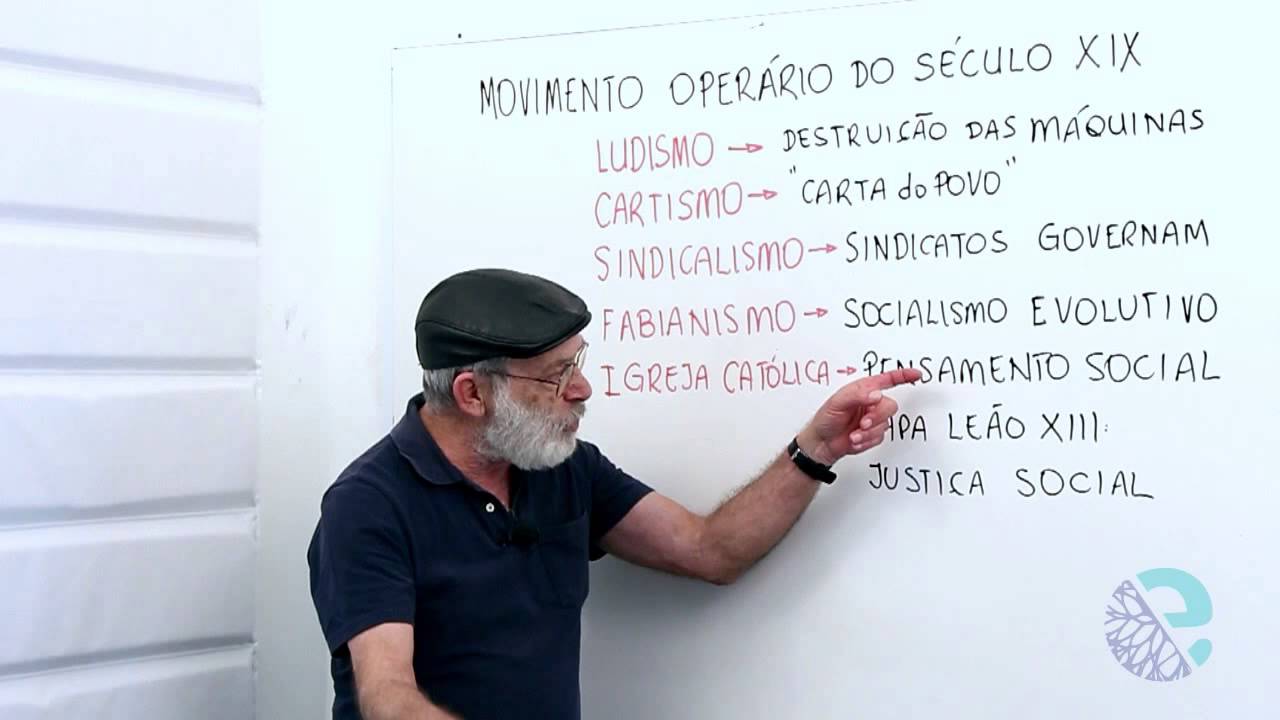 MOVIMENTO OPERÁRIO DO SÉCULO XIX
LUDISMO → DESTRUIÇÃO DAS MÁQUINAS
CARTISMO → "CARTA do POVO"
SINDICALISMO → SINDICATOS GOVERNAM
FABIANISMO → SOCIALISMO EVOLUTIVO
IGREJA CATÓLICA → PENSAMENTO SOCIAL
LEÃO XIII:
JUSTIÇA SOCIAL